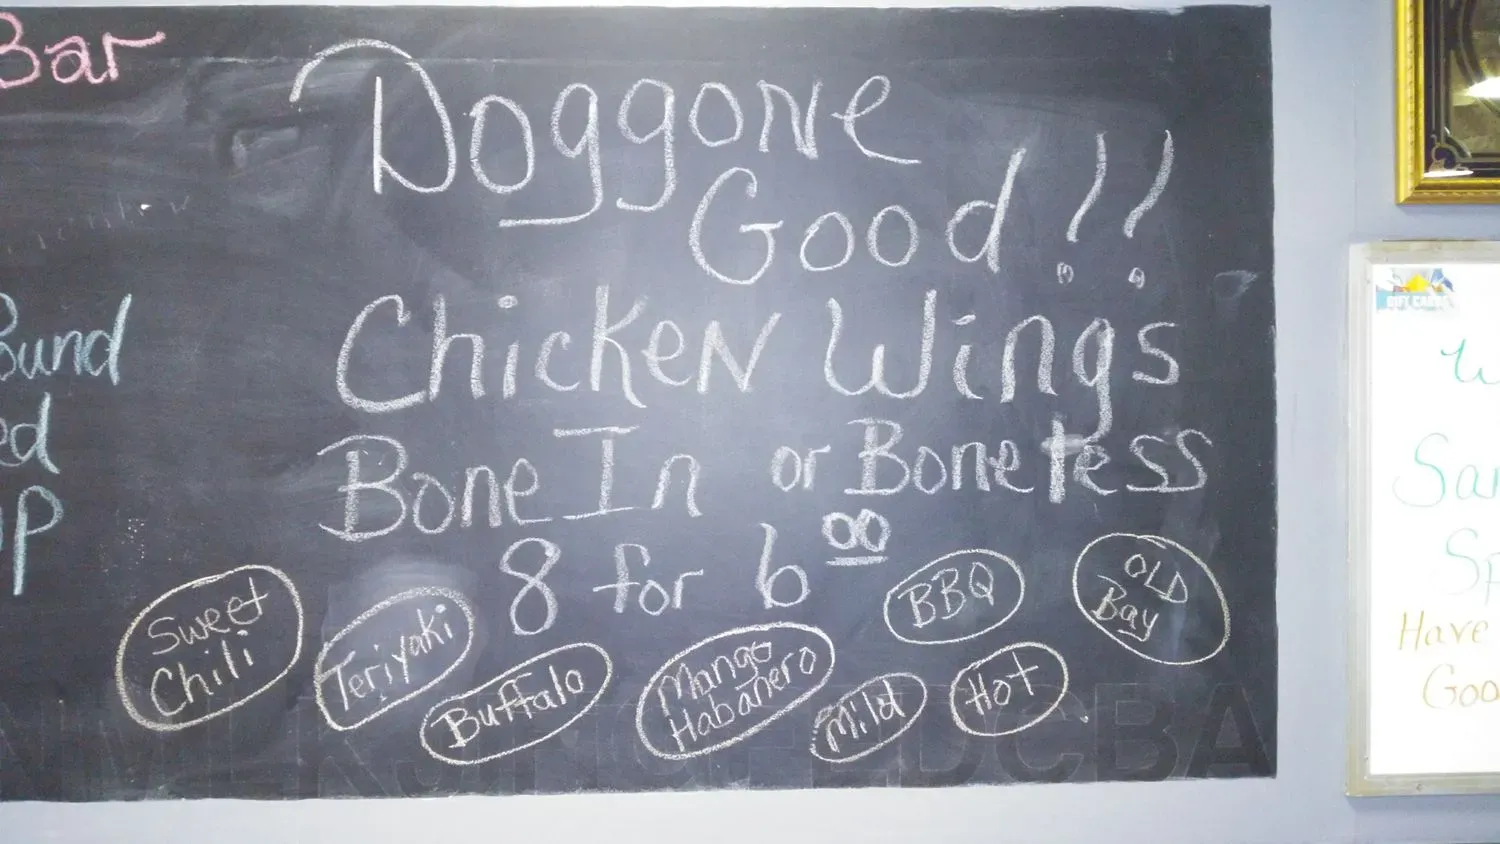 Bar
Doggone
Good!!
Chicken Wings
Bone In or Boneless
8 for 6 00
BBQ
OLD
Bay
Sweet
Chili
Teriyaki
Buffalo
Mango
Habanero
Mild
Hot
ed
GIFT CARDS
Have